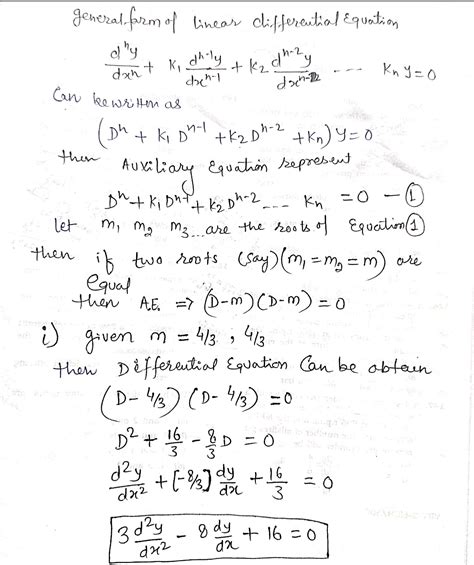 general form of linear differential Equation
dⁿy/dxⁿ + K₁ dⁿ⁻¹y/dxⁿ⁻¹ + K₂ dⁿ⁻²y/dxⁿ⁻² --- Kₙ y = 0
Can be written as
(Dⁿ + K₁ Dⁿ⁻¹ + K₂ Dⁿ⁻² + Kₙ) y = 0
then Auxiliary Equation represent
Dⁿ + K₁ Dⁿ⁻¹ + K₂ Dⁿ⁻² --- Kₙ = 0 — ①
let m₁ m₂ m₃ ... are the roots of Equation ①
then if two roots (say) (m₁ = m₂ = m) are
equal
then A.E. => (D-m) (D-m) = 0
i) given m = 4/3 , 4/3
then Differential Equation Can be obtain
(D - 4/3) (D - 4/3) = 0
D² + 16/3 - 8/3 D = 0
d²y/dx² + [-8/3] dy/dx + 16/3 = 0
3 d²y/dx² - 8 dy/dx + 16 = 0